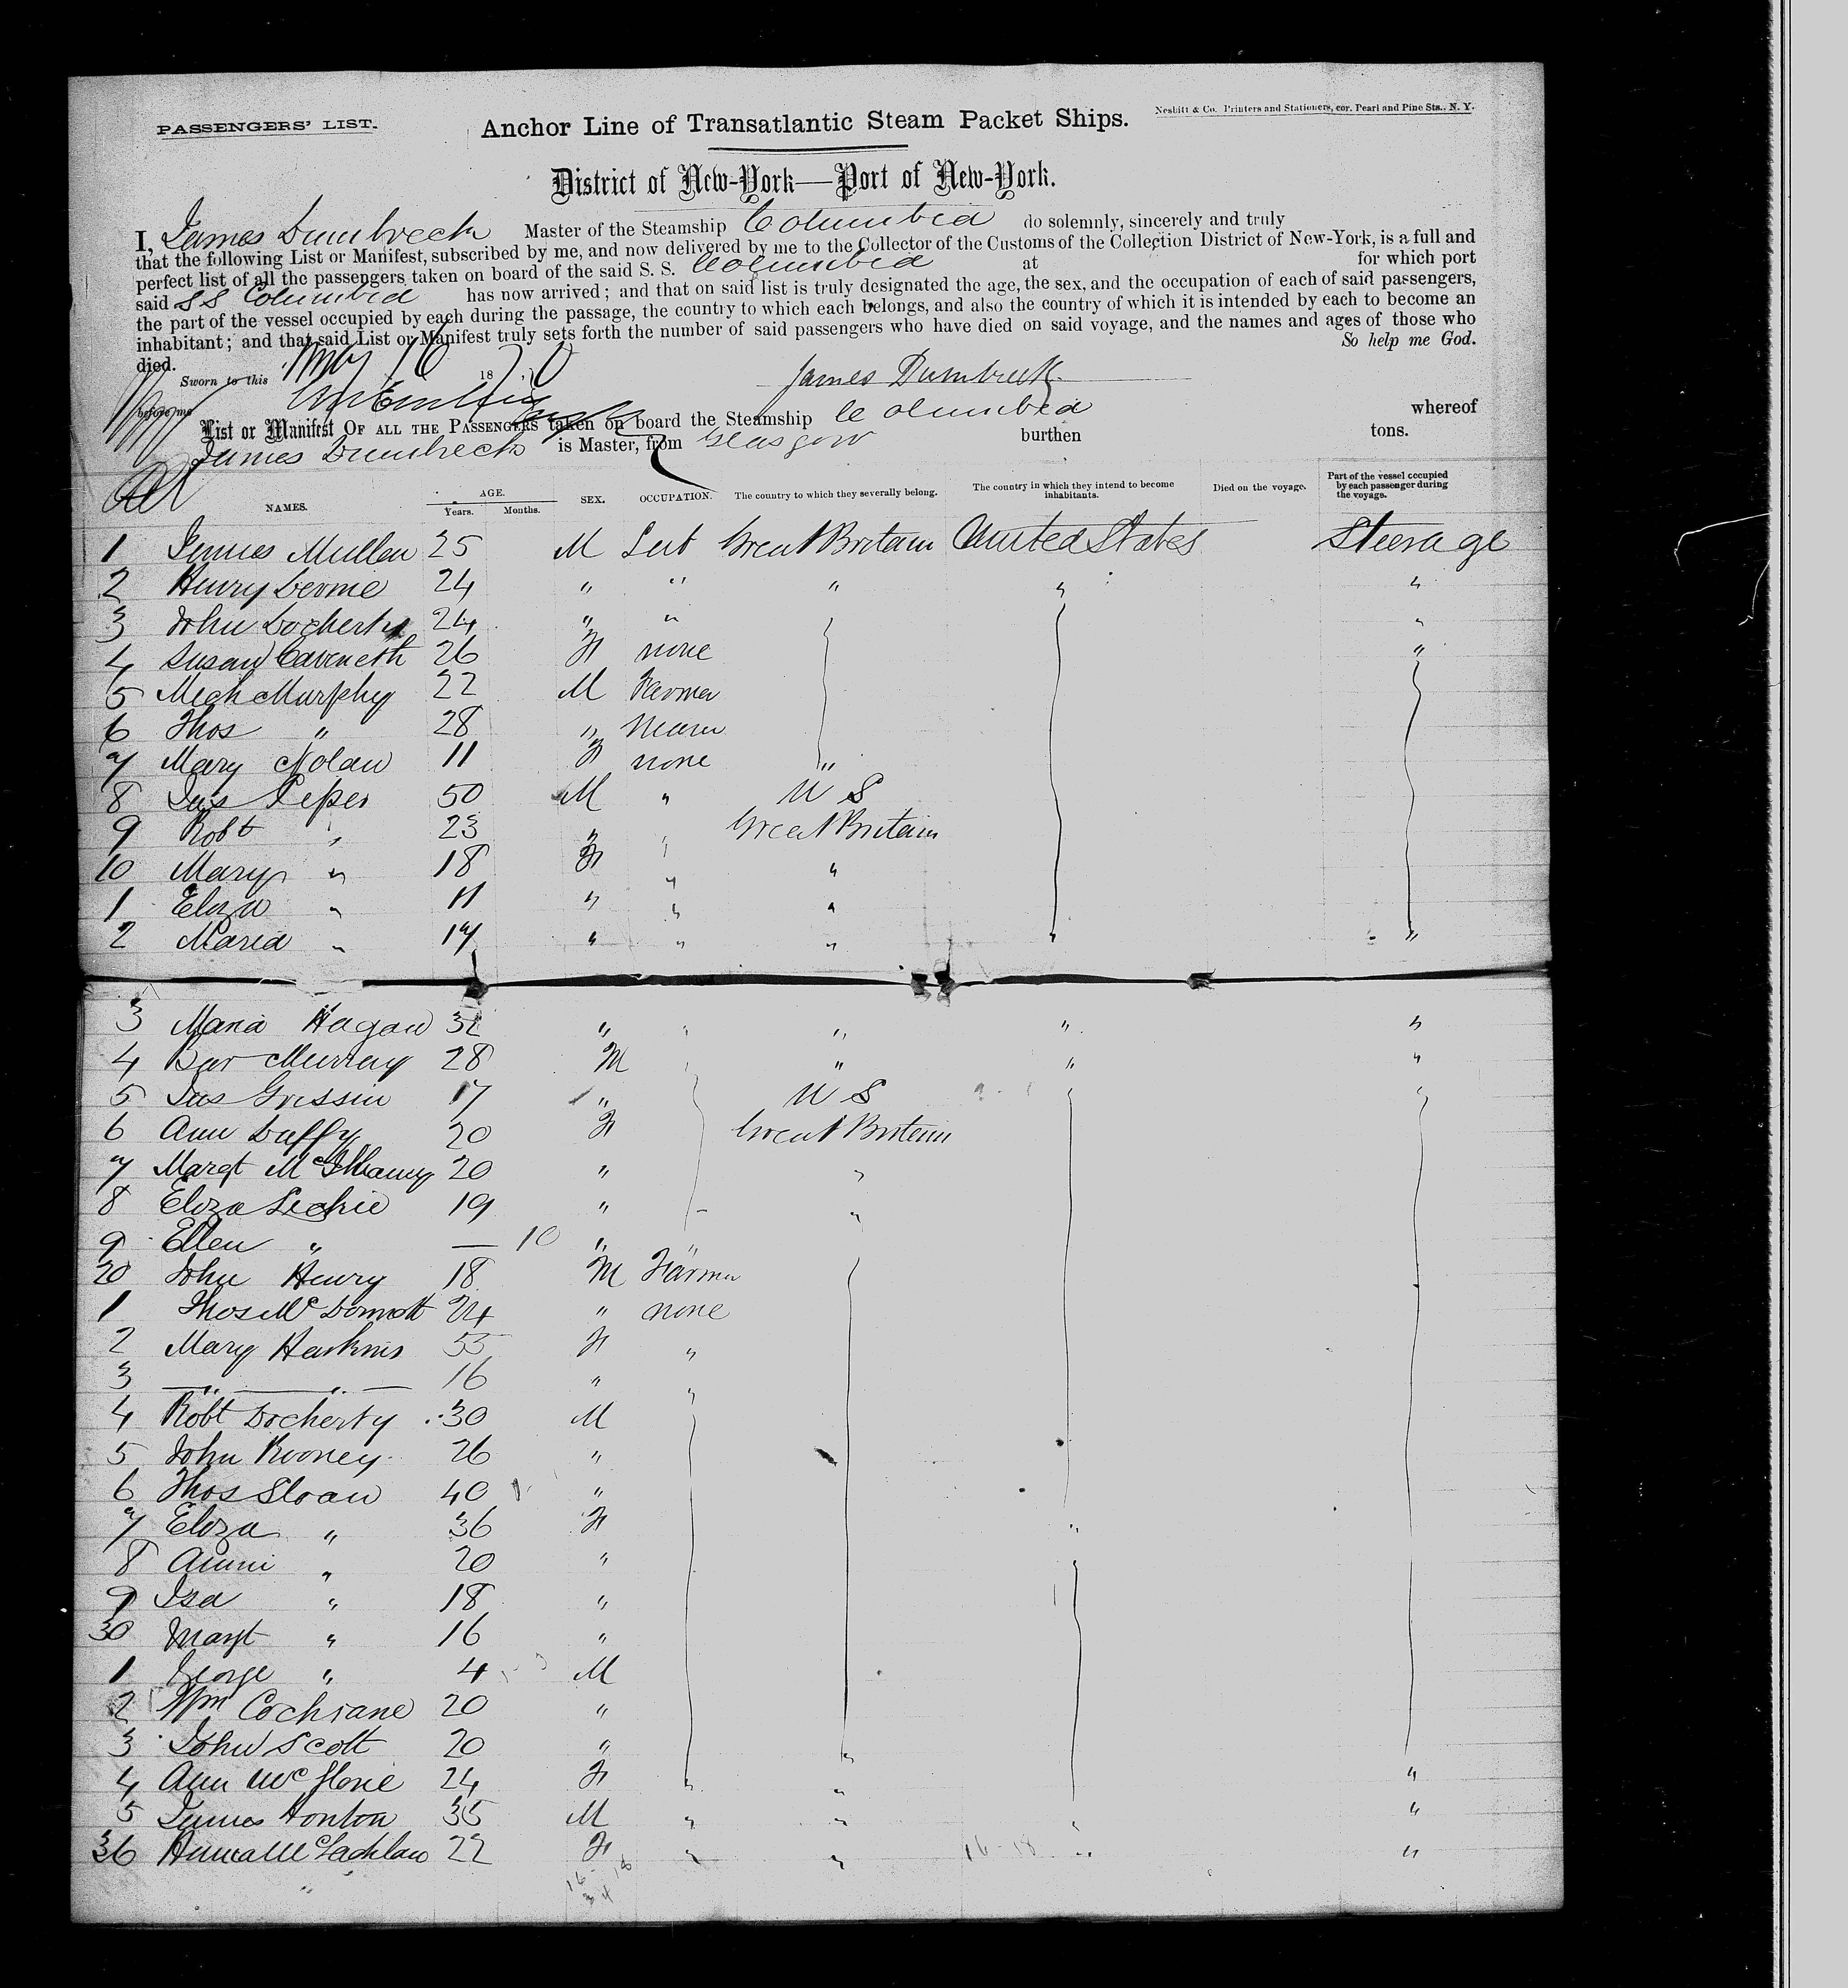 PASSENGERS' LIST.
Anchor Line of Transatlantic Steam Packet Ships.
Nesbitt & Co. Printers and Stationers, cor. Pearl and Pine Sts., N. Y.
District of New-York—Port of New-York.
I, James Dumbreck Master of the Steamship Columbia do solemnly, sincerely and truly
that the following List or Manifest, subscribed by me, and now delivered by me to the Collector of the Customs of the Collection District of New-York, is a full and
perfect list of all the passengers taken on board of the said S. S. Columbia at for which port
said SS Columbia has now arrived; and that on said list is truly designated the age, the sex, and the occupation of each of said passengers,
the part of the vessel occupied by each during the passage, the country to which each belongs, and also the country of which it is intended by each to become an
inhabitant; and that said List or Manifest truly sets forth the number of said passengers who have died on said voyage, and the names and ages of those who
died. So help me God.
Sworn to this 16 1870 James Dumbreck
before me
List or Manifest OF ALL THE PASSENGERS taken on board the Steamship Columbia whereof
James Dumbreck is Master, from Glasgow burthen tons.
NAMES. AGE. Years. Months. SEX. OCCUPATION. The country to which they severally belong. The country in which they intend to become inhabitants. Died on the voyage. Part of the vessel occupied by each passenger during the voyage.
1 James Mullen 25 M Great Britain United States Steerage
2 Henry 24 " " " " "
3 John Docherty 24 " " "
4 Susan 26 F none "
5 Mich Murphy 22 M Farmer
6 Thos " 28 "
7 Mary Nolan 11 F none "
8 Jas 50 M " U S
9 Robt " 23 " " Great Britain
10 Mary " 18 F " "
1 Eliza " 11 " " "
2 Maria " 17 " " " " "
3 Maria Hagan 32 " " " " "
4 Murray 28 M " " "
5 Jas 17 " U S
6 Ann Duffy 20 F Great Britain
7 Margt 20 " "
8 Eliza Leckie 19 " "
9 Ellen " — 10 " "
20 John Henry 18 M Farmer
1 Thos 24 " none
2 Mary 55 F "
3 — " — " — 16 " "
4 Robt Docherty 30 M
5 John Rooney 26 "
6 Thos Sloan 40 "
7 Eliza " 36 F "
8 " 20 "
9 Isa " 18 "
30 Margt " 16 "
1 George " 4 M
2 Wm Cochrane 20 "
3 John Scott 20 " "
4 Ann 24 F " " "
5 James 35 M " " "
36 McLachlan 22 F " " " "